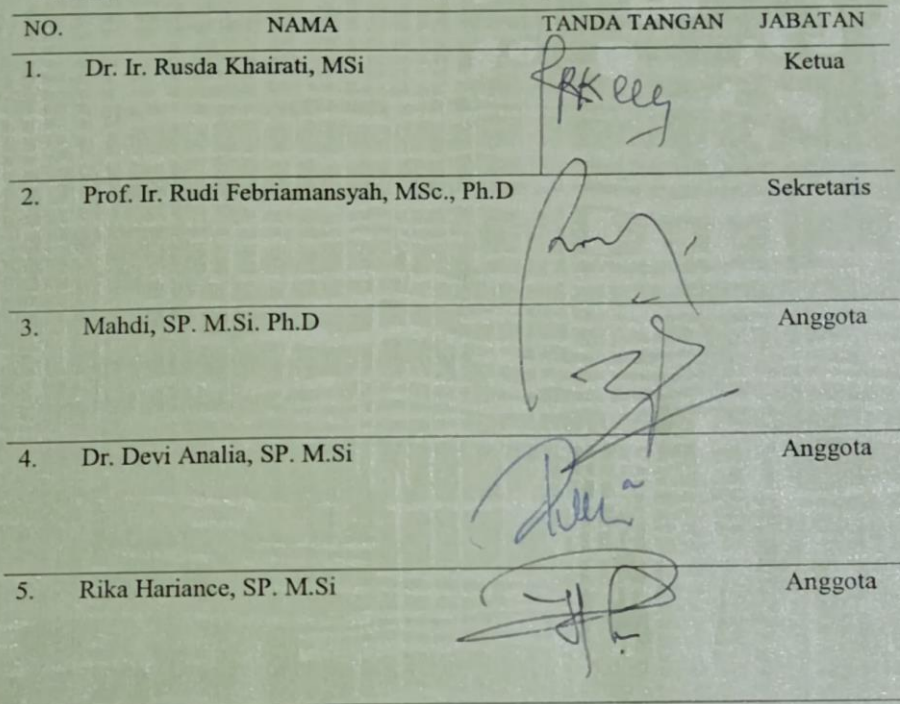 NO. NAMA TANDA TANGAN JABATAN
1. Dr. Ir. Rusda Khairati, MSi Ketua
2. Prof. Ir. Rudi Febriamansyah, MSc., Ph.D Sekretaris
3. Mahdi, SP. M.Si. Ph.D Anggota
4. Dr. Devi Analia, SP. M.Si Anggota
5. Rika Hariance, SP. M.Si Anggota